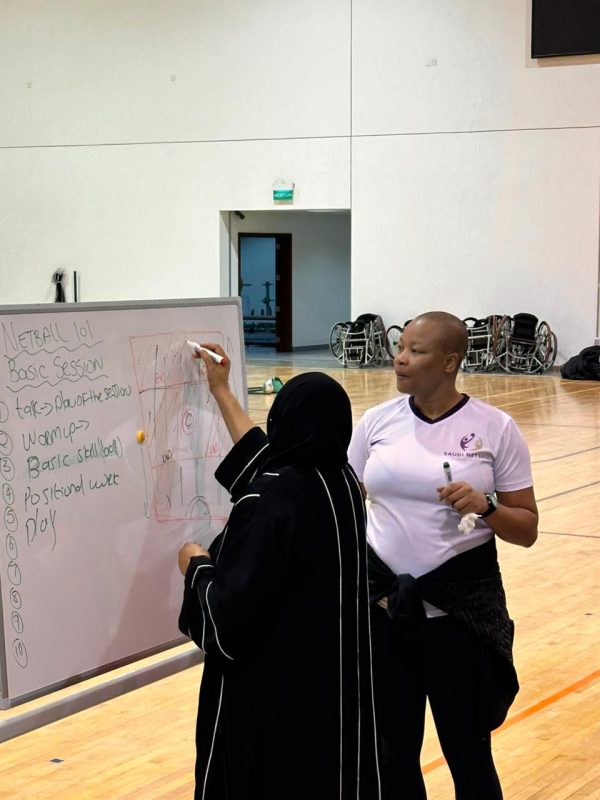 NETBALL 101
Basic Session
1 talk → Plan of the session
2 warm up →
3 Basic skill (ball)
4 Positional work
5 Play
6
7
8
9
10
C
SAUDI NETBALL